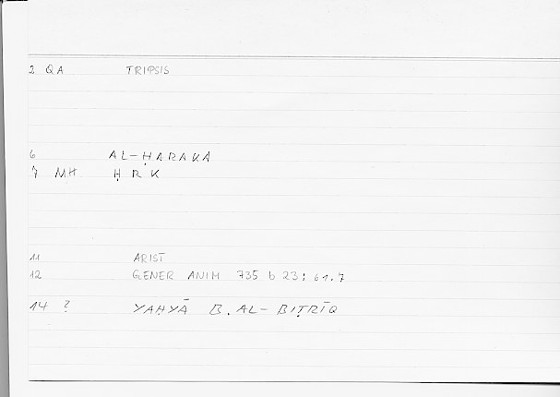 2 QA TRIPSIS
6 AL-ḤARAKA
7 MH Ḥ R K
11 ARIST
12 GENER ANIM 735 b 23; 61.7
14 ? YAḤYĀ B. AL-BIṬRĪQ